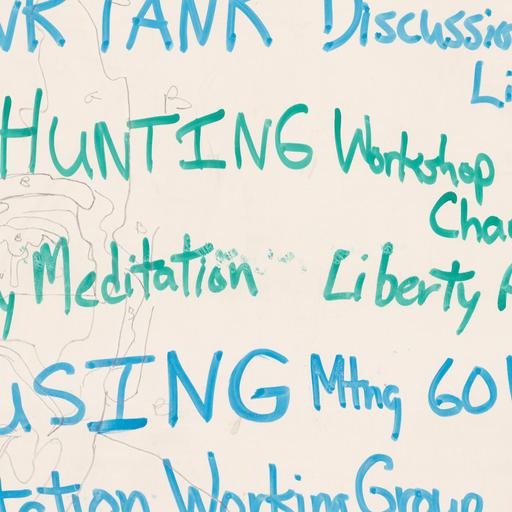 TANK Discussio
Li
HUNTING Workshop
Cha
Meditation Liberty
USING Mtng 60
tation Working Group